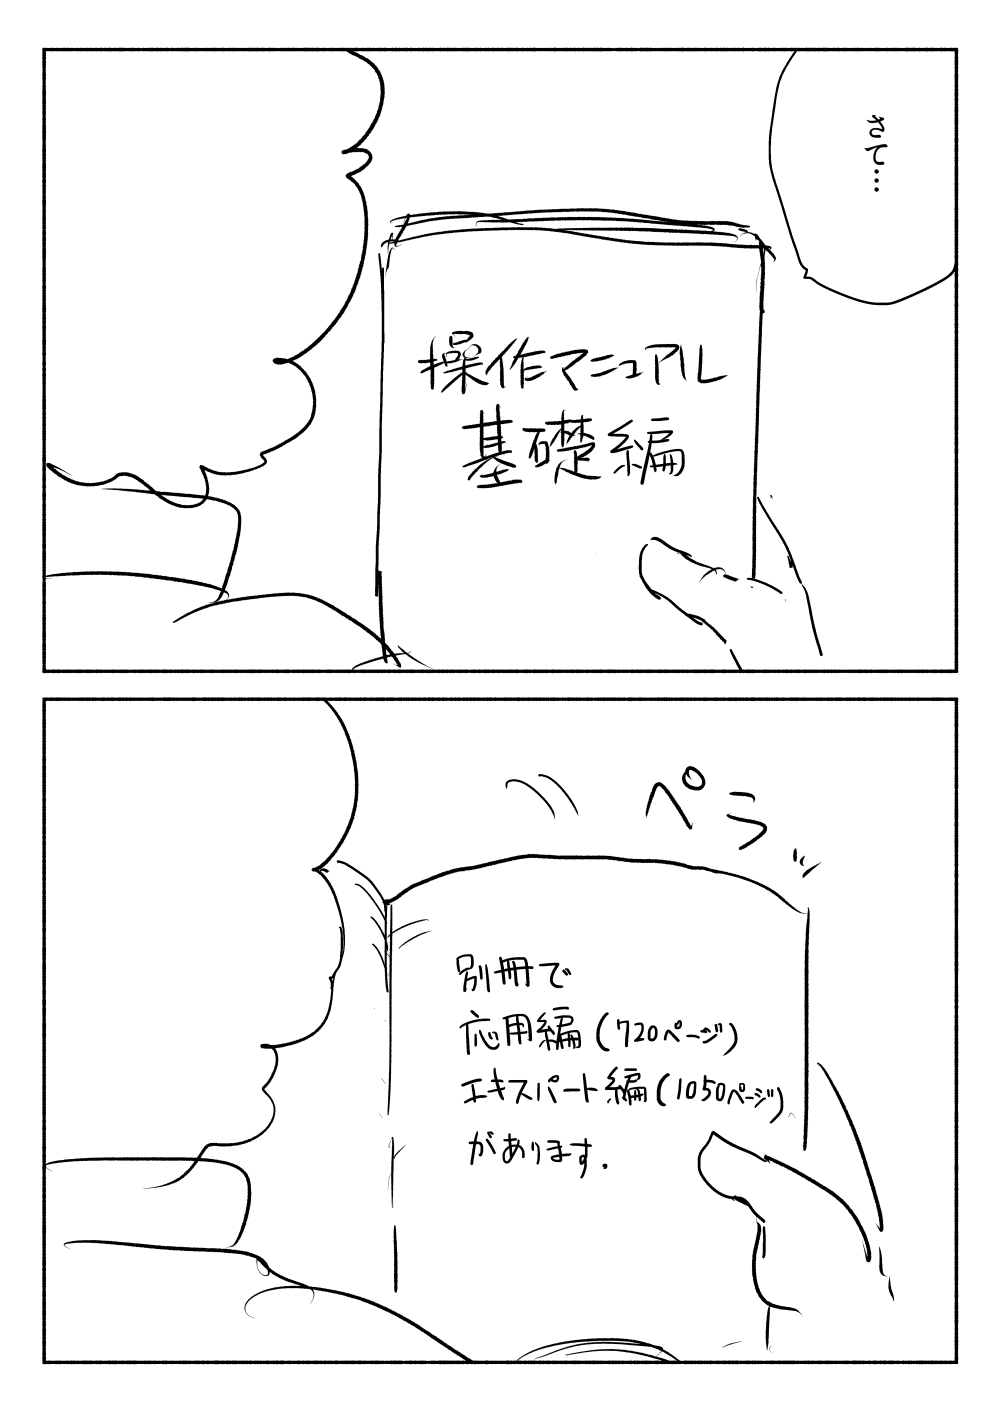 さて…
操作マニュアル
基礎編
ペラッ
別冊で
応用編(720ページ)
エキスパート編(1050ページ)
があります.